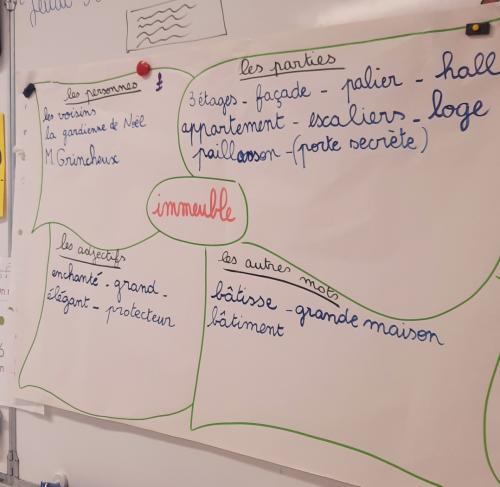 Jeudi
les personnes
les voisins
la gardienne de Noël
M. Grincheux
les parties
3 étages - façade - palier - hall
appartement - escaliers - loge
paillasson - (porte secrète)
immeuble
les adjectifs
enchanté - grand -
élégant - protecteur
les autres mots
bâtisse - grande maison
bâtiment